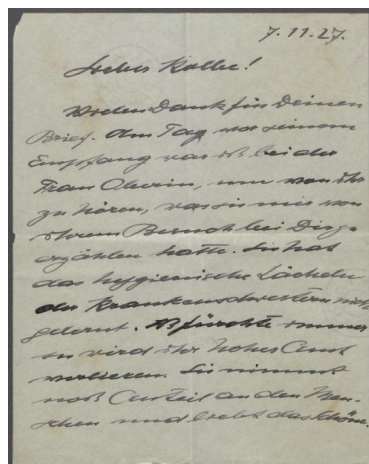 7.11.27.
Lieber Kolbe!
Vielen Dank für Deinen
Brief. Am Tag vor seinem
Empfang war ich bei der
Frau Oberin, um von ihr
zu hören, was sie mir von
ihrem Besuch bei Dir zu
erzählen hatte. Sie hat
das hygienische Lächeln
der Krankenschwestern nicht
gelernt. Ich fürchte immer
sie wird ihr hohes Amt
verlieren. Sie nimmt
noch Anteil an den Men-
schen und liebt das Schöne.